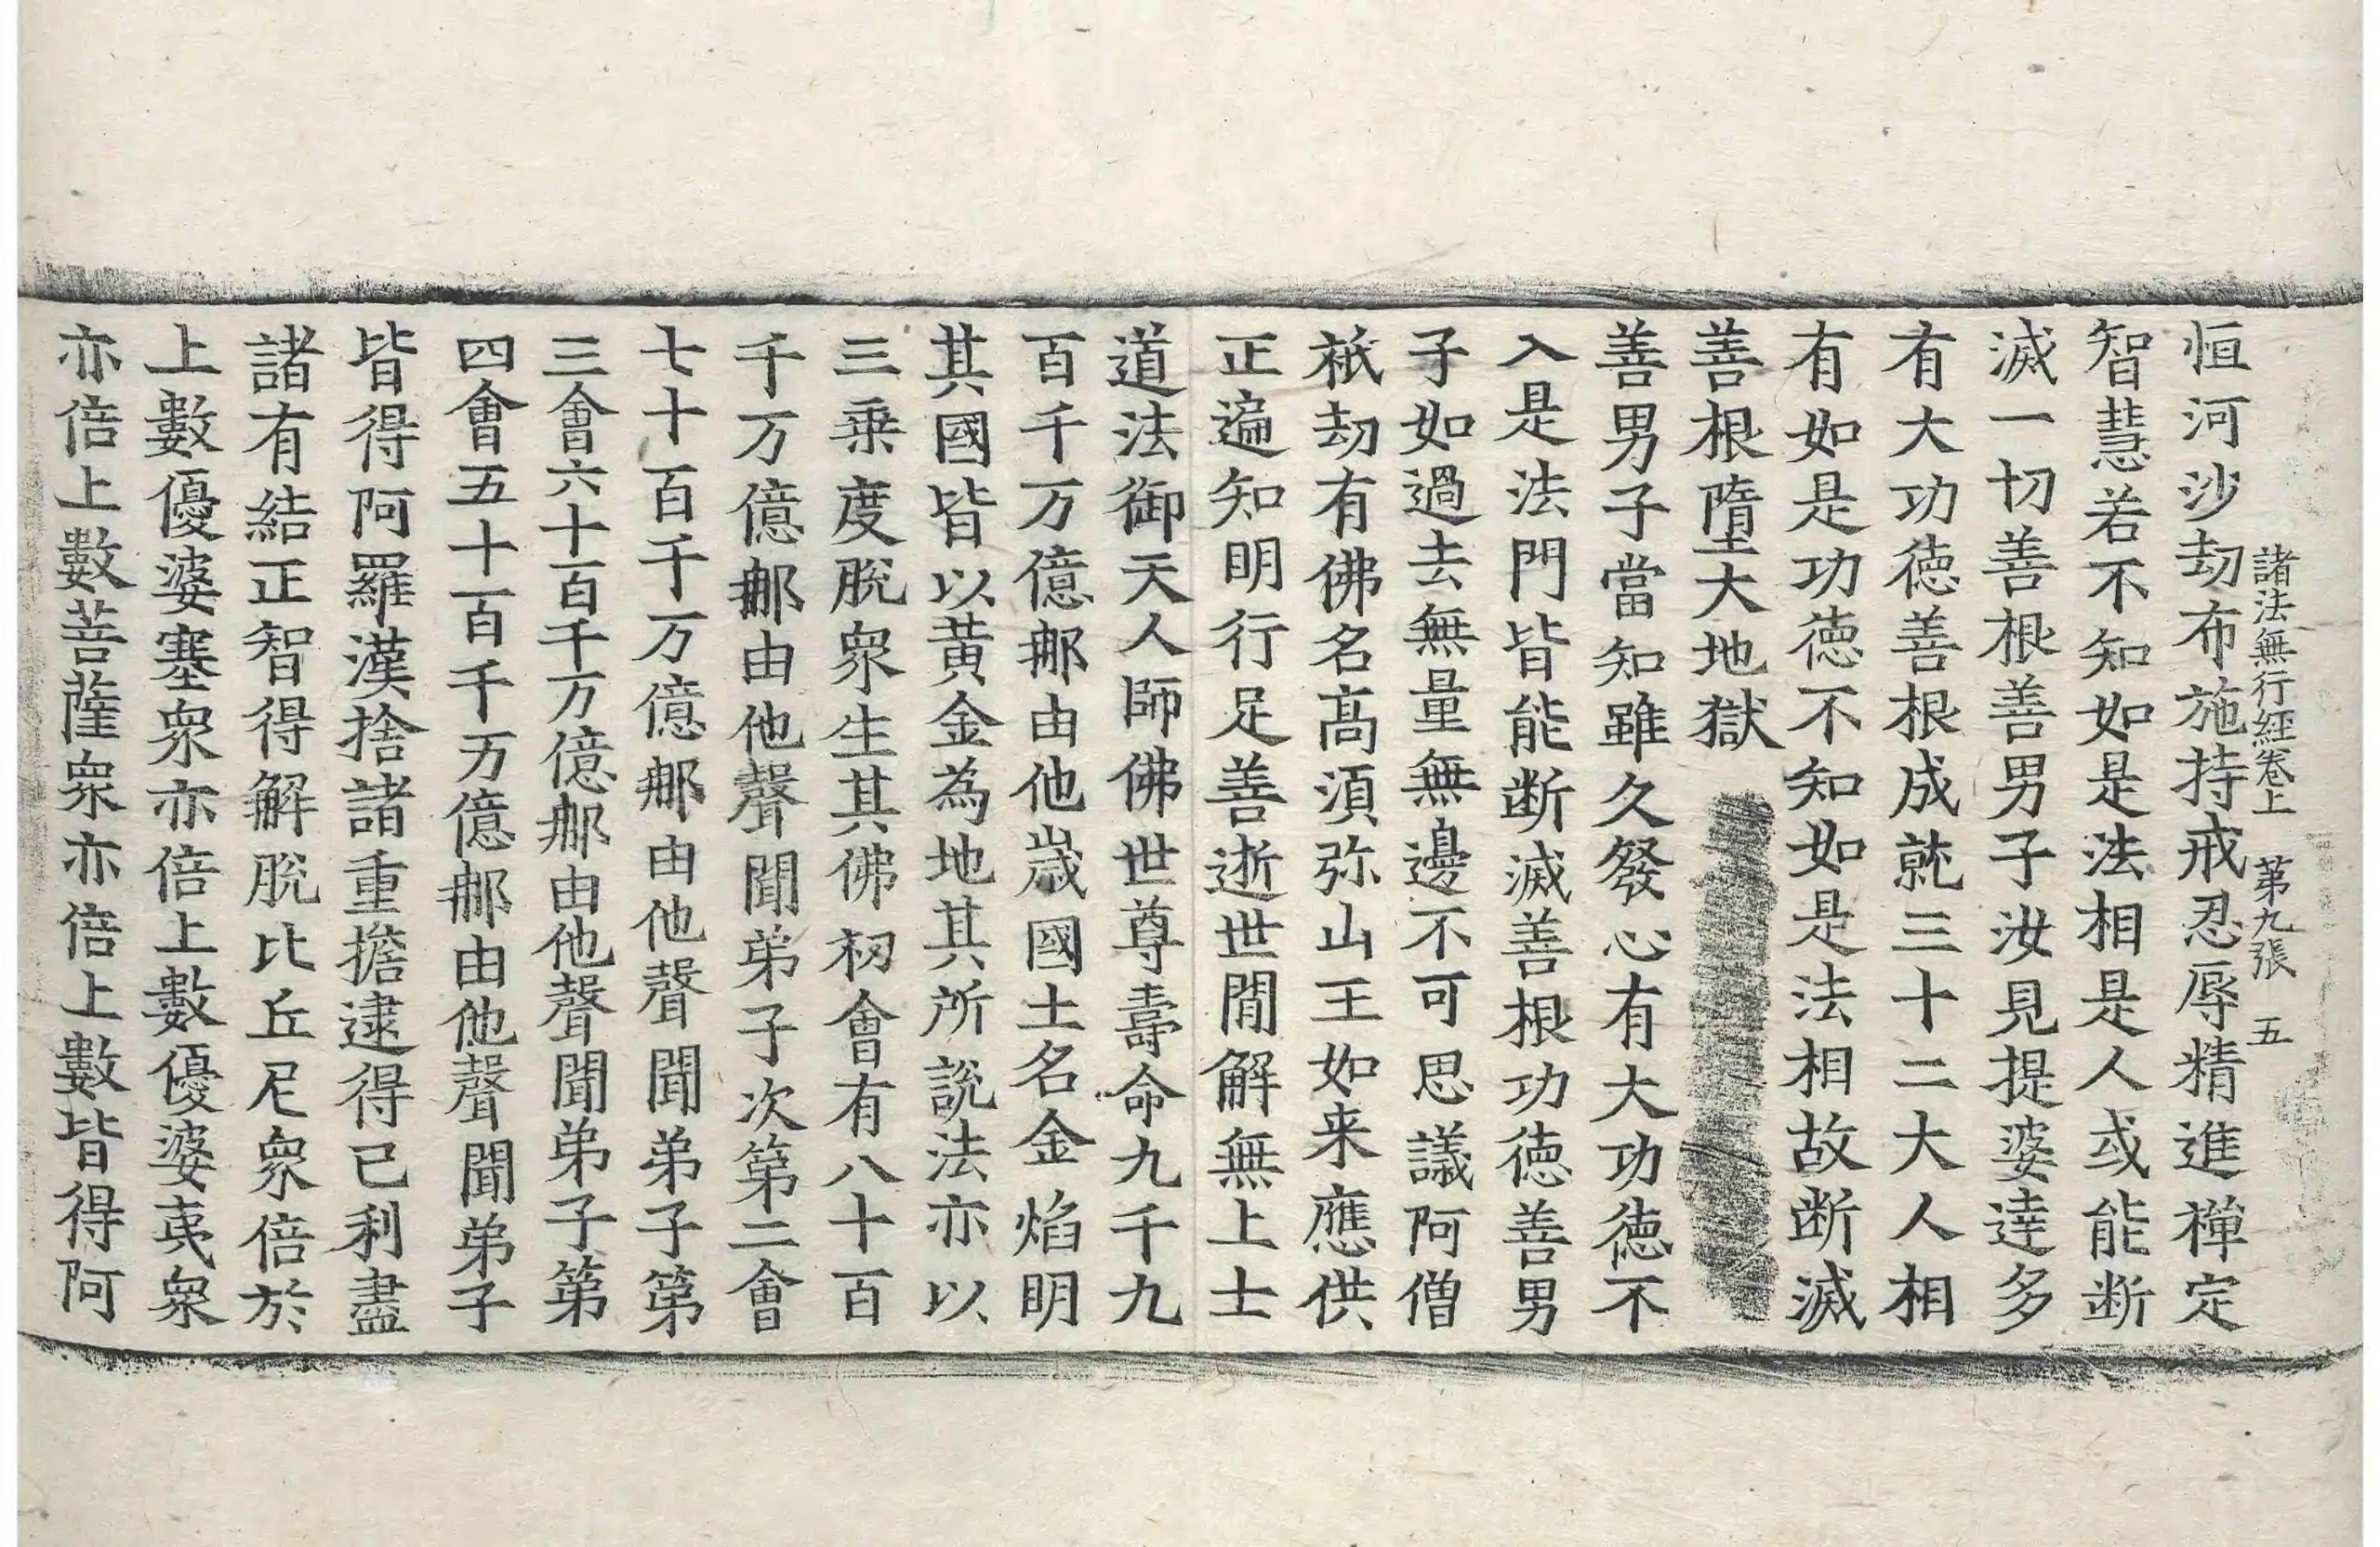 諸法無行經卷上　第九張　五
恒河沙劫布施持戒忍辱精進禪定
智慧若不知如是法相是人或能断
滅一切善根善男子汝見提婆達多
有大功德善根成就三十二大人相
有如是功德不知如是法相故断滅
善根墮大地獄
善男子當知雖久發心有大功德不
入是法門皆能断滅善根功德善男
子如過去無量無邊不可思議阿僧
祇劫有佛名髙須弥山王如来應供
正遍知明行足善逝世閒解無上士
道法御天人師佛世尊壽命九千九
百千万億那由他歲國土名金焰明
其國皆以黄金為地其所說法亦以
三乗度脫衆生其佛初會有八十百
千万億那由他聲聞弟子次第二會
七十百千万億那由他聲聞弟子第
三會六十百千万億那由他聲聞弟子第
四會五十百千万億那由他聲聞弟子
皆得阿羅漢捨諸重擔逮得己利盡
諸有結正智得解脫比丘尼衆倍於
上數優婆塞衆亦倍上數優婆夷衆
亦倍上數菩薩衆亦倍上數皆得阿